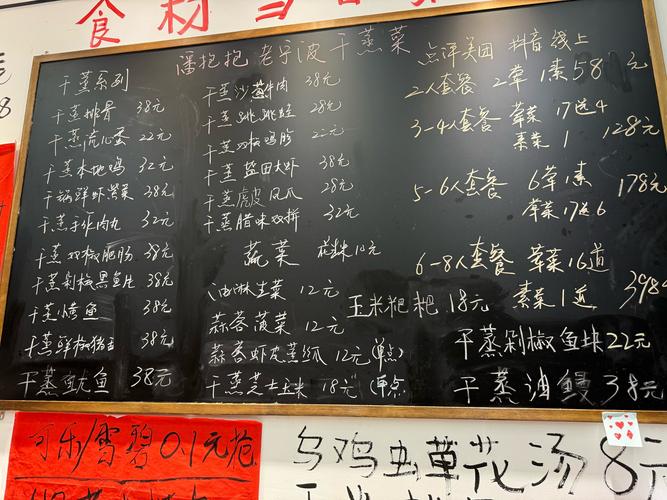 食材
潘抱抱 老宁波干蒸菜
干蒸系列
干蒸排骨 38元
干蒸流心蛋 22元
干蒸本地鸡 32元
干锅鲜虾紫菜 38元
干蒸手作肉丸 32元
干蒸双椒肥肠 38元
干蒸剁椒黑鱼片 38元
干蒸烤鱼 38元
干蒸鲜椒猪 38元
干蒸鱿鱼 38元
干蒸沙葱牛肉 38元
干蒸跳跳蛙 28元
干蒸双椒鸡胗 22元
干蒸盐田大虾 38元
干蒸虎皮凤爪 28元
干蒸腊味双拼 32元
蔬菜 花生米 10元
油淋生菜 12元
蒜蓉菠菜 12元
蒜蓉虾皮蒸瓜 12元(单点)
干蒸芝士玉米 18元(单点
点评美团 抖音线上
2人套餐 2草1素58元
3-4人套餐 草菜17送4
素菜1 128元
5-6人套餐 6草1素 178元
草菜17送6
6-8人套餐 草菜16道
素菜1道 398元
玉米粑粑 18元
干蒸剁椒鱼块22元
干蒸油鳗 38元
可乐/雪碧0.1元抢
乌鸡虫草花汤 8元